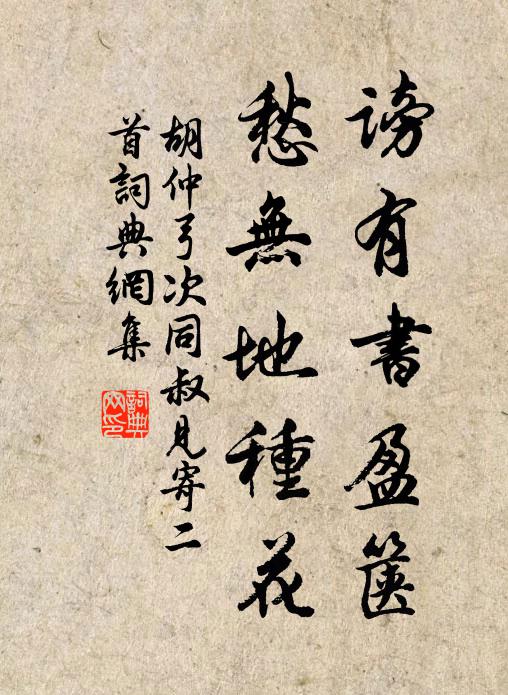 謗有書盈篋
愁無地種花
胡仲弓次同叔見寄二
首詞典網集
詞典
网印